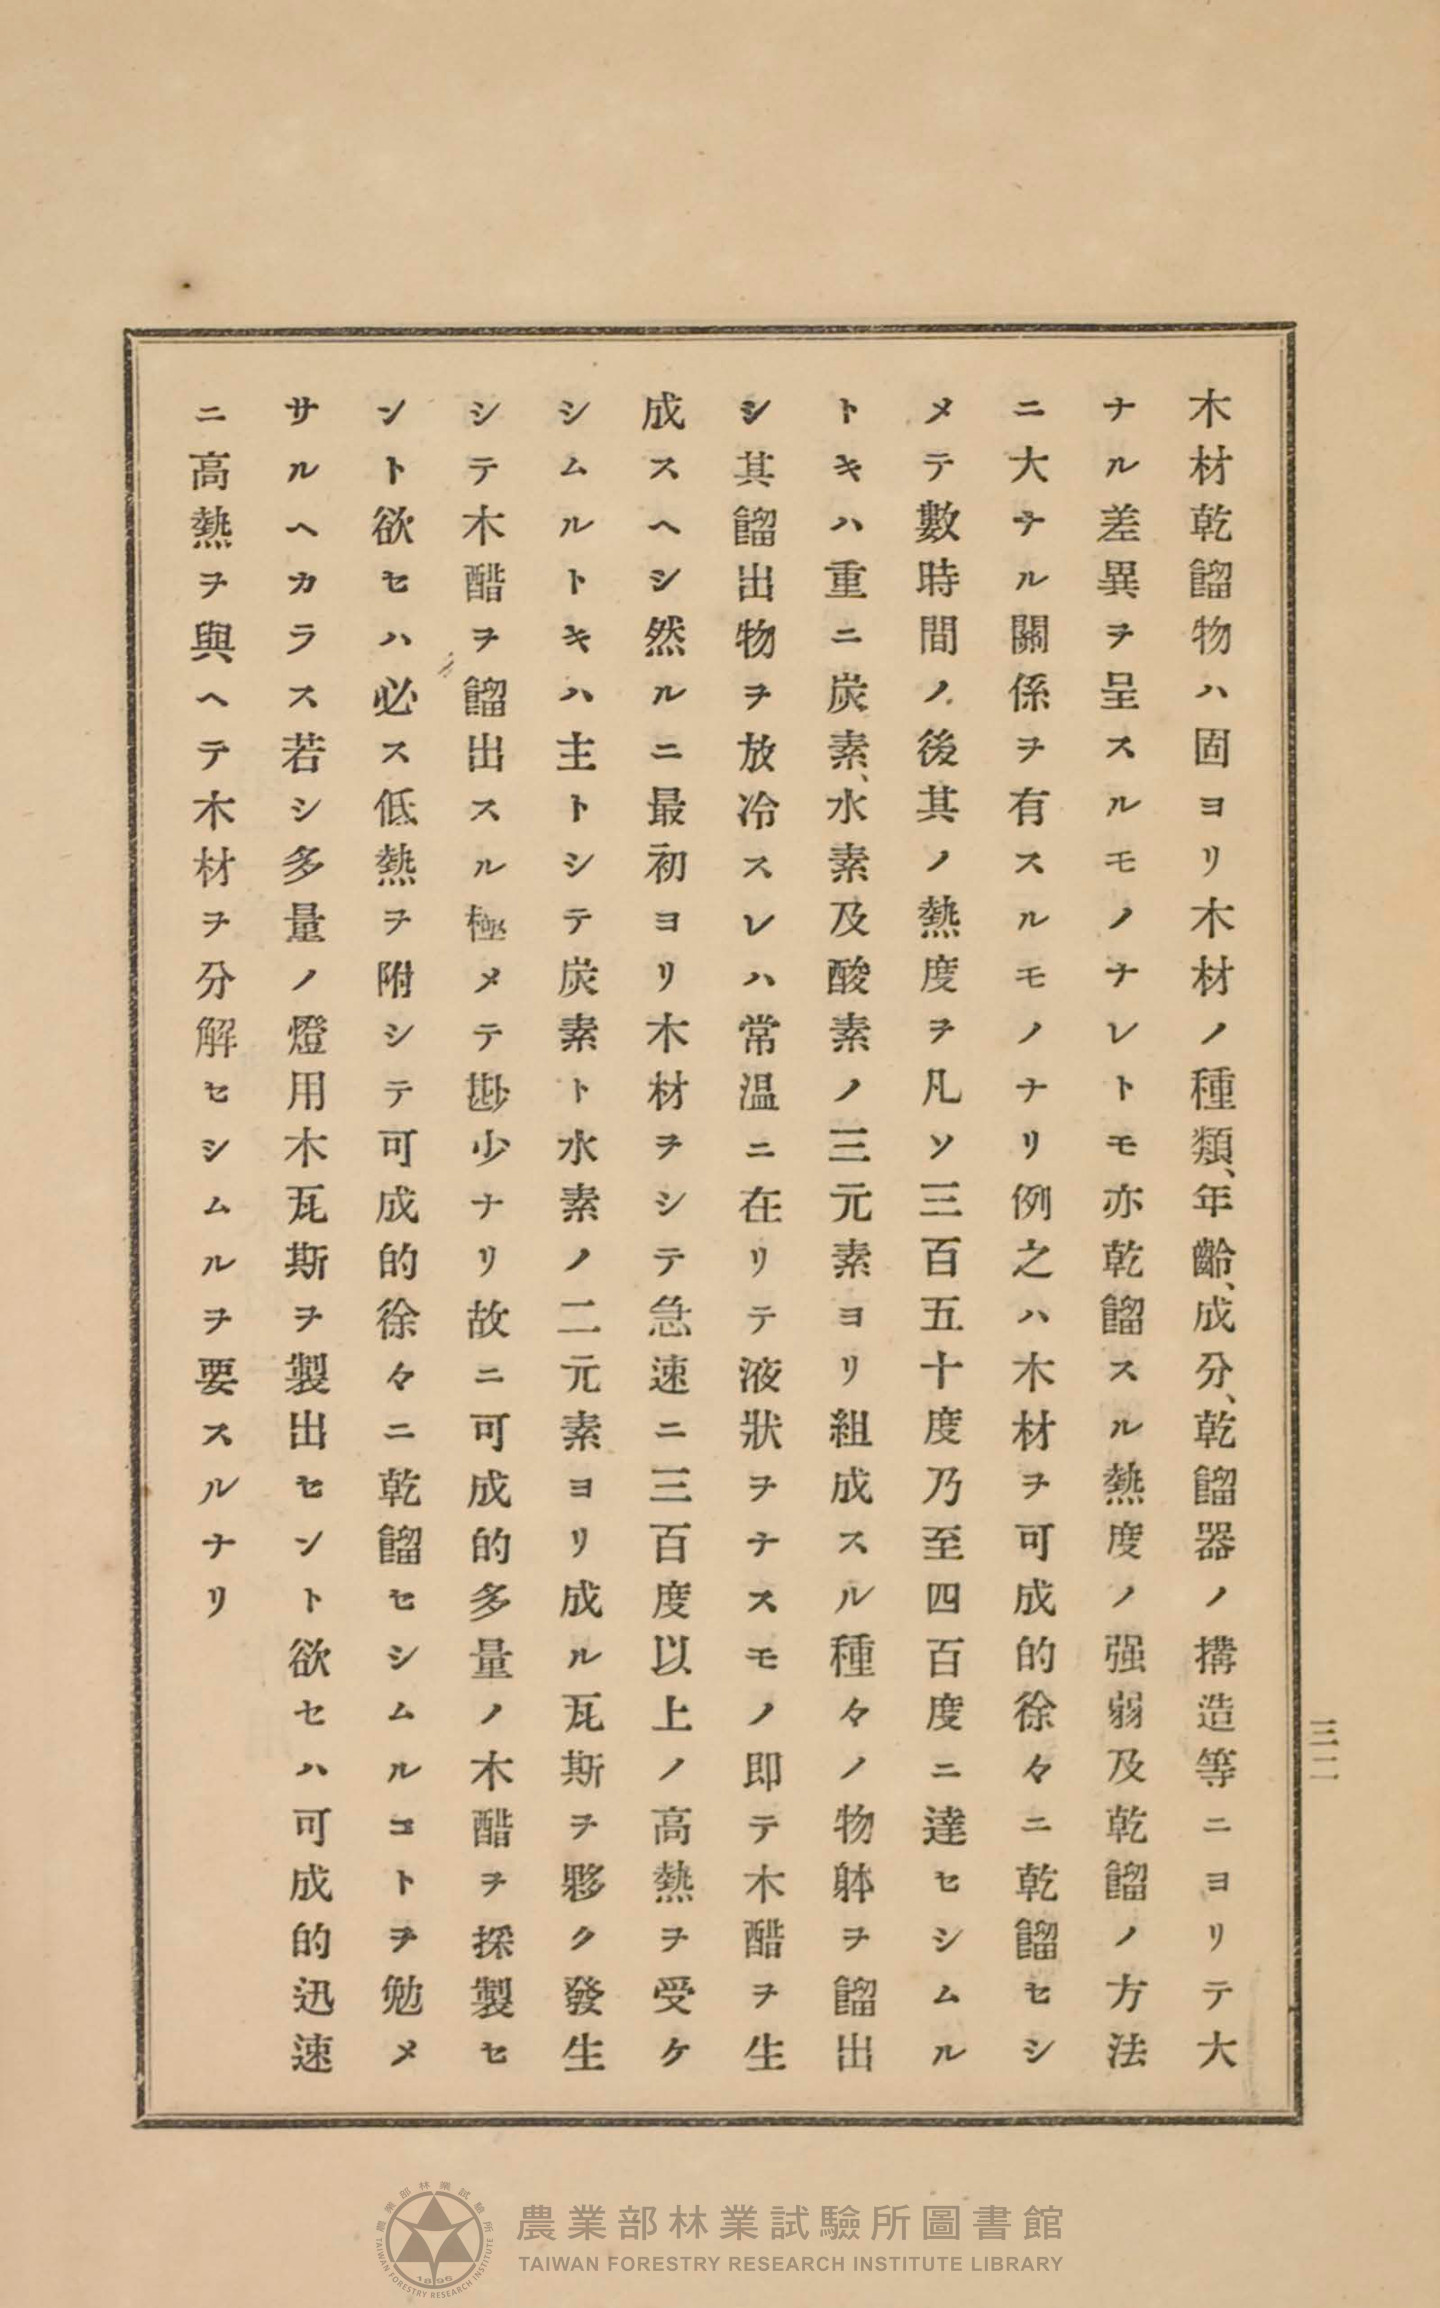 木材乾餾物ハ固ヨリ木材ノ種類、年齡、成分、乾餾器ノ搆造等ニヨリテ大
ナル差異ヲ呈スルモノナレトモ亦乾餾スル熱度ノ强弱及乾餾ノ方法
ニ大ナル關係ヲ有スルモノナリ例之ハ木材ヲ可成的徐々ニ乾餾セシ
メテ數時間ノ後其ノ熱度ヲ凡ソ三百五十度乃至四百度ニ達セシムル
トキハ重ニ炭素、水素及酸素ノ三元素ヨリ組成スル種々ノ物躰ヲ餾出
シ其餾出物ヲ放冷スレハ常温ニ在リテ液狀ヲナスモノ即テ木醋ヲ生
成スヘシ然ルニ最初ヨリ木材ヲシテ急速ニ三百度以上ノ高熱ヲ受ケ
シムルトキハ主トシテ炭素ト水素ノ二元素ヨリ成ル瓦斯ヲ夥ク發生
シテ木醋ヲ餾出スル極メテ尠少ナリ故ニ可成的多量ノ木醋ヲ採製セ
ント欲セハ必ス低熱ヲ附シテ可成的徐々ニ乾餾セシムルコトヲ勉メ
サルヘカラス若シ多量ノ燈用木瓦斯ヲ製出セント欲セハ可成的迅速
ニ高熱ヲ與ヘテ木材ヲ分解セシムルヲ要スルナリ
三二
農業部林業試驗所圖書館
TAIWAN FORESTRY RESEARCH INSTITUTE LIBRARY
農業部林業試驗所
TAIWAN FORESTRY RESEARCH INSTITUTE
1896